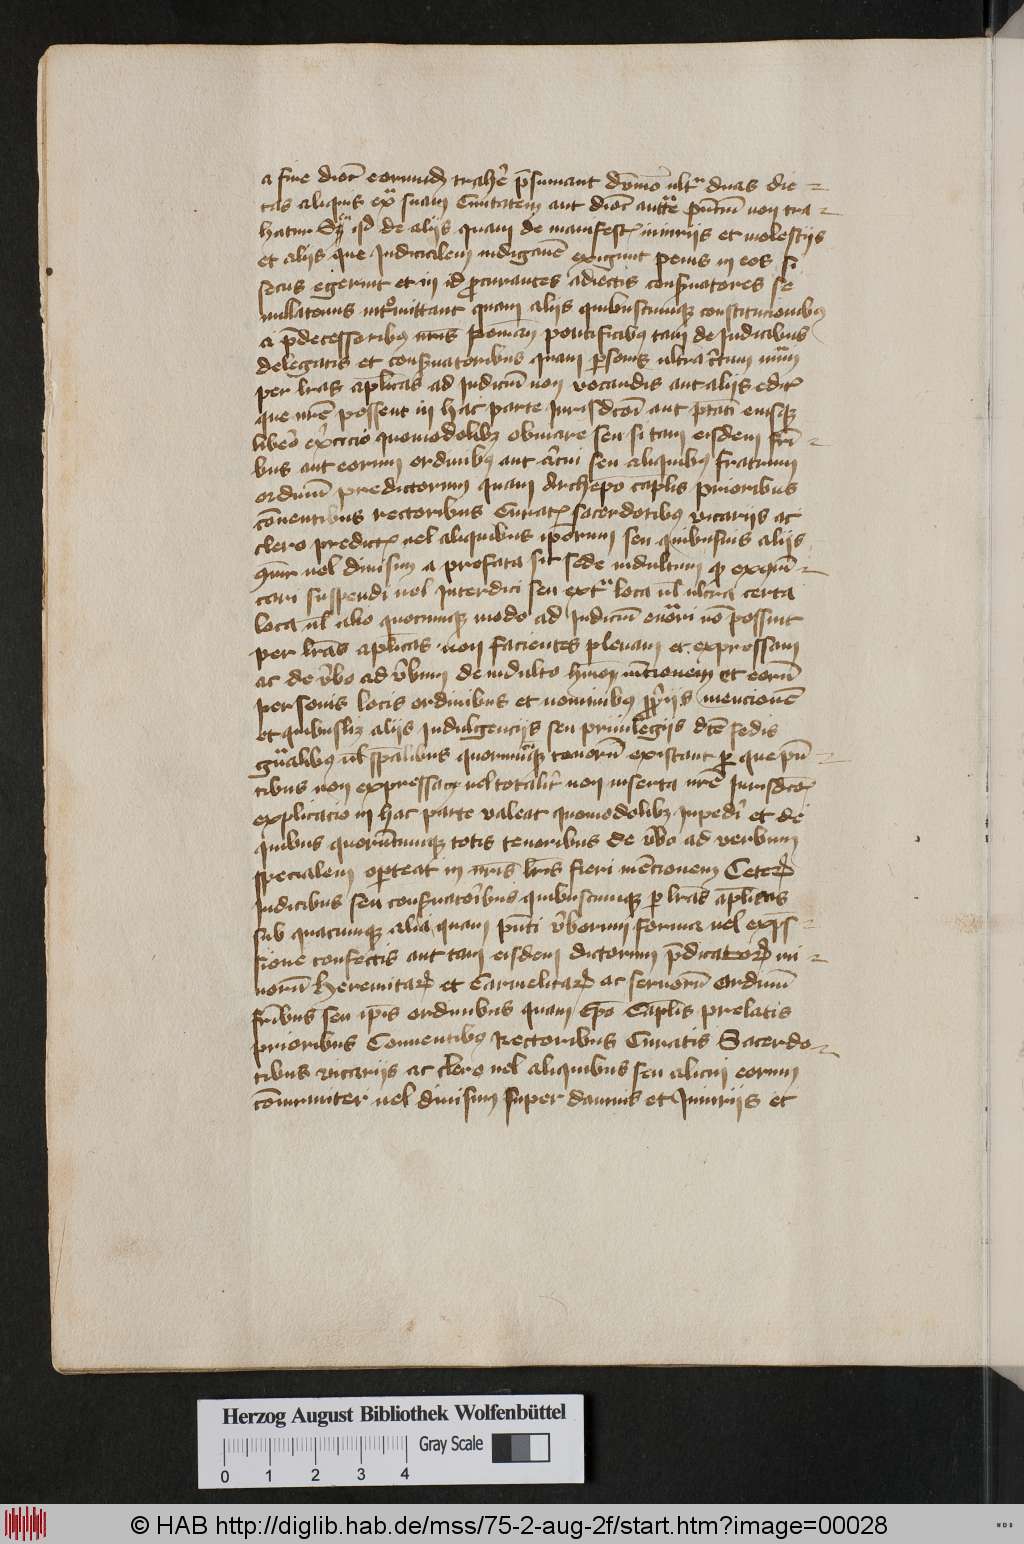 a fine dioc̄ eorumd trahe᷑ p̄sumant du͞mo᷑ ultᵃ duas die-
tas aliquis exᵃ suam Ciuitatem aut dioc̄ auct͞te pn͞tiū non tra-
hatur seu de aliis quam de manifest iniuriis et molestiis
et aliis que Judicialem indigane᷑ exigunt penis in eos si
secus egerint et in id procurantes adiectis conseruatores se
nullatenus intromittant quam aliis quibuscumqꝫ constitucionibꝰ
a p̄decessoribꝰ nr̄is Roman̄ pontificibꝰ tam de Judicibus
delegatis et conseruatoribus quam personis ultra certum nūm
per lr̄as ap̄licas ad Judiciū non vocandis aut aliis edit
que nr̄e possent in hac parte Jurisdcōi aut p̄tati eiusqꝫ
libero exercicio quomodolibꝫ obuiare seu si tam eisdem fri-
bus aut eorum ordinibꝰ aut alicui seu aliquibus fratrum
ordinū predictorum quam Archiep̄o cap̄lis prioribus
cōuentibus rectoribus Curat sacerdotibꝰ vicariis ac
clero predict uel aliquibus ip̄orum seu quibusuis aliis
cōmr uel diuisim a prefata sit sede indultum qꝫ excōmu-
cari suspendi uel Interdici seu extᵃ loca ul̄ ultra certa
loca ul̄ alio quocumqꝫ modo ad Judiciū euocari nō possint
per lr̄as ap̄licas non facientes plenam et expressam
ac de v̄bo ad v̄bum de indulto hmōi mētionem et eorū
personis locis ordinibus et nominibꝰ prop̄riis mencionē
et quibuslibꝫ aliis Indulgenciis seu priuilegiis dc̄e sedis
gn̄alibus ul̄ sp̄alibus quorumcūqꝫ tenorū existant per que pn̄-
tibus non expressam uel totalit̄ non inserta nr̄e Jurisdcō
explicacio in hac parte valeat quomodolibꝫ Impedir̄ et de
quibus quorūcumqꝫ totis tenoribus de v̄bo ad verbum
specialem oporteat in nr̄is lr̄is fieri mēcionem Ceterꝝ
Judicibus seu conseruatoribus quibuscumqꝫ per lr̄as ap̄licas
sub quacumqꝫ alia quam pn̄ti v̄borum forma uel exp̄s-
sione confectis aut tam eisdem dictorum p̄dicatorꝝ mi-
norū Heremitarꝝ et Carmelitarꝝ ac seruorū Ordinū
fr̄ibus seu ip̄is ordinibus quam Ep̄o Cap̄lis prelatis
prioribus Conuentibꝰ Rectoribus Curatis Sacerdo-
tibus vicariis ac clero uel aliquibus seu alicui eorum
cōmuniter uel diuisim super dampnis et Iniuriis et
Herzog August Bibliothek Wolfenbüttel
Gray Scale
0 1 2 3 4
© HAB http://diglib.hab.de/mss/75-2-aug-2f/start.htm?image=00028